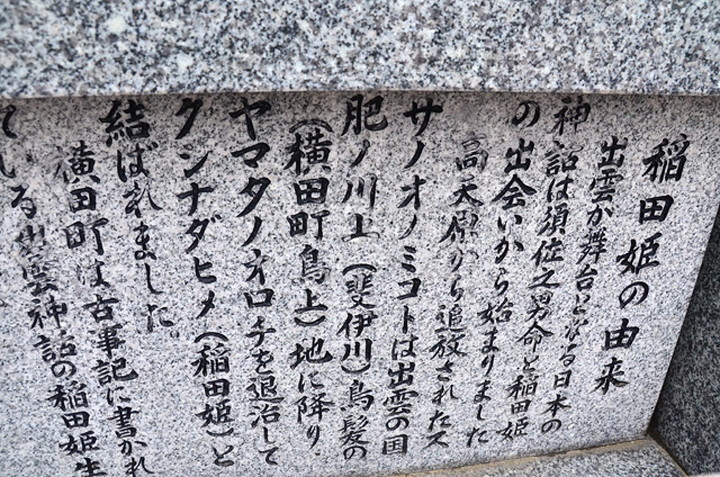 稲田姫の由来
出雲が舞台となる日本の
神話は須佐之男命と稲田姫
の出会いから始まりました
高天原から追放されたス
サノオノミコトは出雲の国
肥ノ川上（斐伊川）鳥髪の
（横田町鳥上）地に降り、
ヤマタノオロチを退治して
クシナダヒメ（稲田姫）と
結ばれました。
横田町は古事記に書かれ
ている出雲神話の稲田姫生